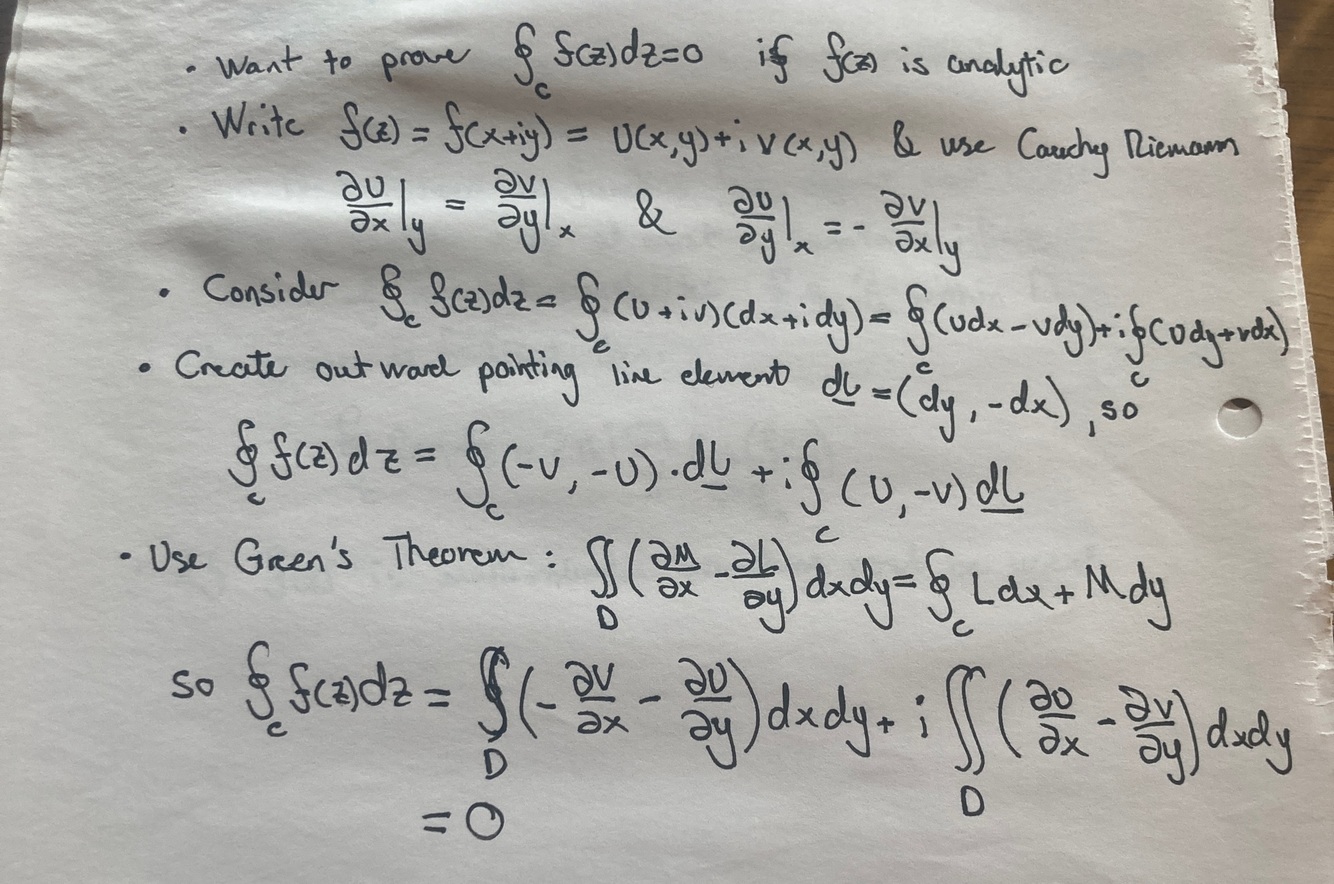 • Want to prove ∮_c f(z)dz=0 if f(z) is analytic
• Write f(z) = f(x+iy) = U(x,y)+i v(x,y) & use Cauchy Riemann
∂U/∂x|_y = ∂V/∂y|_x & ∂U/∂y|_x = - ∂V/∂x|_y
• Consider ∮_c f(z)dz = ∮_c (U+iv)(dx+idy) = ∮_c (udx - vdy)+i∮_c (Udy+vdx)
• Create outward pointing line element dl = (dy, -dx), so
∮_c f(z)dz = ∮_c (-v, -U)·dl + i∮_c (U, -v) dl
• Use Green's Theorem: ∬_D (∂M/∂x - ∂L/∂y) dxdy = ∮_c Ldx + Mdy
so ∮_c f(z)dz = ∬_D (- ∂V/∂x - ∂U/∂y) dxdy + i ∬_D (∂U/∂x - ∂V/∂y) dxdy
= 0